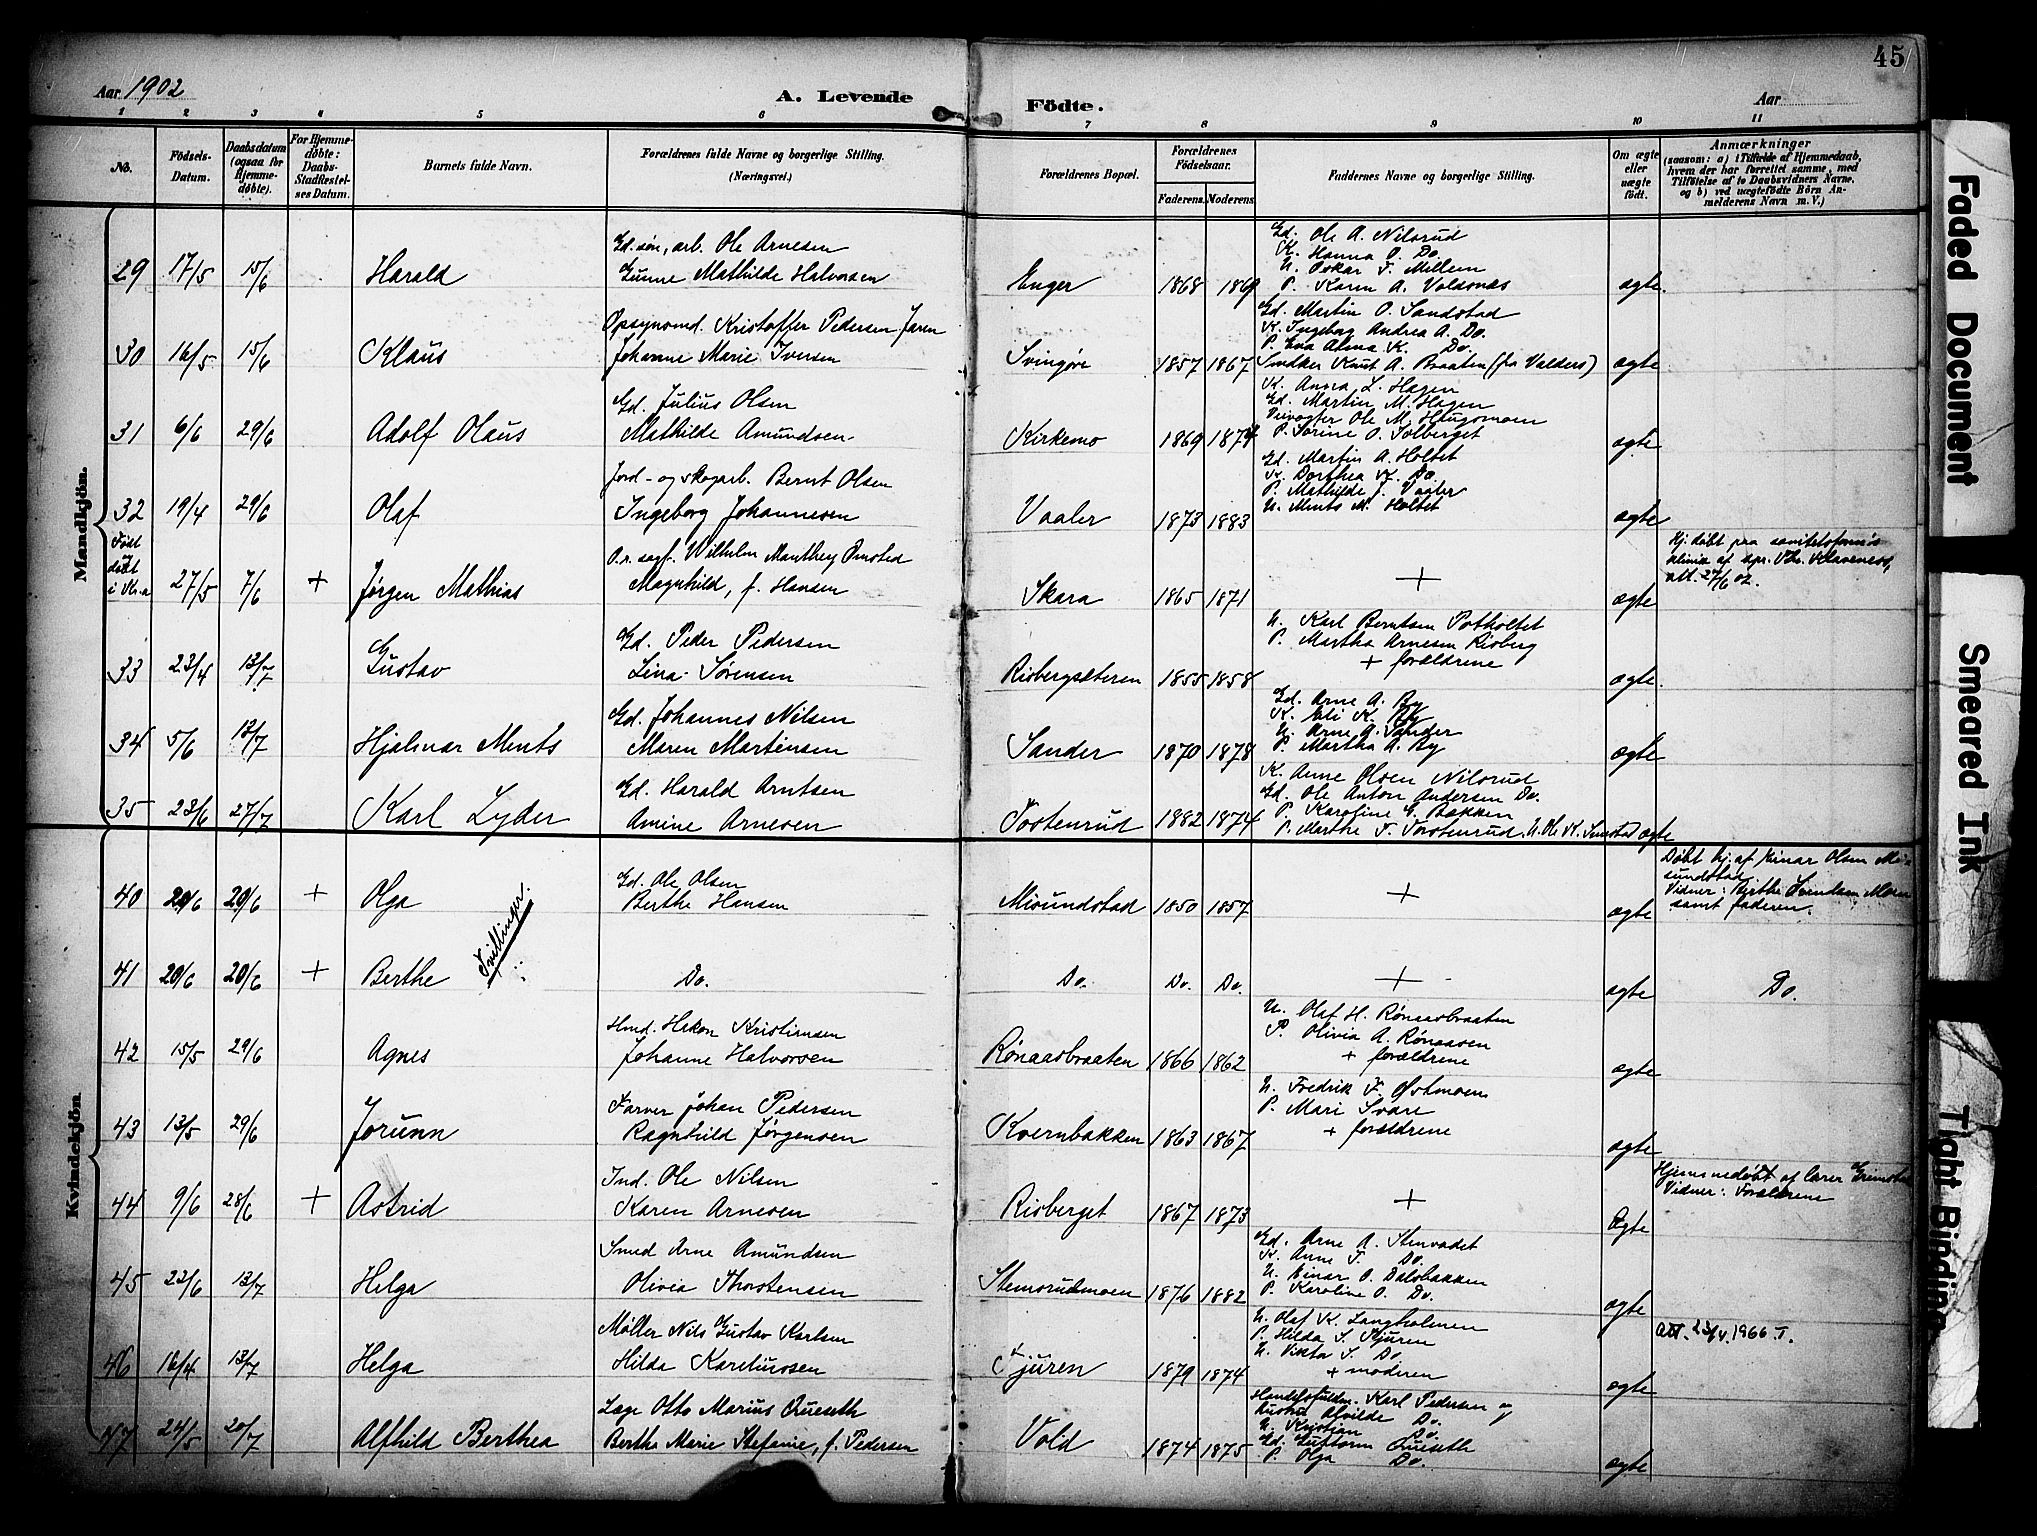 Aar 1902
A. Levende
Födte.
Aar
45
1 2 3 4 5 6 7 8 9 10 11
No.
Födsels-
Datum.
Daabsdatum
(ogsaa for
Hjemme-
döbte).
For Hjemme-
døbte:
Daabs-
Stadfæstel-
ses Datum.
Barnets fulde Navn.
Forældrenes fulde Navne og borgerlige Stilling.
(Næringsvei.)
Forældrenes Bopæl.
Forældrenes
Födselsaar.
Faderens. Moderens.
Faddernes Navne og borgerlige Stilling.
Om ægte
eller
uægte
födt.
Anmærkninger
(saasom: a) i Tilfælde af Hjemmedaab,
hvem der har forrettet samme, med
Tilföielse af to Daabsvidners Navne,
og b) ved uægtefödte Börn An-
melderens Navn m. V.)
Mandkjön.
29 17/5 15/6 Harald
Gd. søn, arb. Ole Arnesen
Gunne Mathilde Halvorsen
Enger 1868 1869
Gd. Ole A. Nilsrud
K. Hanna O. Do.
U. Oskar F. Mellem
P. Karen A. Valsnæs
ægte.
30 16/5 15/6 Klaus
Opsynsmd. Kristoffer Pedersen Jaren
Johanne Marie Iversen
Svingøre 1857 1867
Gd. Martin O. Sandstad
K. Ingeborg Andrea A. Do.
P. Eva Alma K. Do.
Snedker Knut A. Braaten (fra Valders)
ægte
31 6/6 29/6 Adolf Olaus
Gd. Julius Olsen
Mathilde Amundsen
Kirkemo 1869 1874
K. Anna L. Hagen
Gd. Martin M. Hagen
Veivogter Ole M. Haugsmoen
P. Sørine O. Solberget
ægte
32 19/4 29/6 Olaf
Jord- og skogarb. Bernt Olsen
Ingeborg Johannesen
Vaaler 1873 1883
Gd. Martin A. Holtet
K. Dorthea K. Do.
P. Mathilde J. Vaaler
U. Ments M. Holtet
ægte
Født
og
døbt
i Kr.a 27/5 7/6 + Jørgen Mathias
O.r. sagf. Wilhelm Manthey Omsted
Magnhild, f. Hansen
Skara 1865 1871
+
ægte
Hj. døbt paa sanitetsforen's
klinik af spr. Thv. Klaveness,
att. 27/6 02.
33 23/4 13/7 Gustav
Gd. Peder Pedersen
Lina Sørensen
Risbergsæteren 1855 1858
U. Karl Berntsen Potholtet
P. Martha Arnesen Risberg
+ forældrene
ægte.
34 5/6 13/7 Hjalmar Ments
Gd. Johannes Nilsen
Maren Martinsen
Sander 1870 1878
Gd. Arne A. By
K. Eli K. By
U. Arne A. Sander
P. Martha A. By
ægte
35 23/6 27/7 Karl Lyder
Gd. Harald Arntsen
Amine Arnesen
Tostenrud 1882 1874
K. Anne Olsen Nilsrud
Gd. Ole Anton Andersen Do.
P. Karoline G. Bakken
P. Marthe F. Torstenrud. U. Ole K. Sunstad
ægte
Kvindekjön.
40 20/6 20/6 + Olga
Tvillinger.
Gd. Ole Olsen
Berthe Hansen
Misundstad 1850 1857
+
ægte
Døbt hj. af Einar Olsen Mi-
sundstad.
Vidner: Berthe Svendsen Moen
samt faderen.
41 20/6 20/6 + Berthe
Do.
Do. Do. Do.
+
ægte
Do.
42 15/5 29/6 Agnes
Hmd. Hakon Kristiansen
Johanne Halvorsen
Rønaasbraaten 1866 1862
U. Olaf H. Rønaasbraaten
P. Olivia A. Rønaasen
+ forældrene
ægte
43 13/5 29/6 Jorunn
Farver Johan Pedersen
Ragnhild Jørgensen
Kvernbakken 1863 1867
U. Fredrik F. Østmoen
P. Mari Svare
+ forældrene
ægte
44 9/6 28/6 + Astrid
Ind. Ole Nilsen
Karen Arnesen
Risberget 1867 1873
+
Ægte
Hjemmedøbt af lærer Grimstad
Vidner: Forældrene
45 22/6 13/7 Helga
Smed Arne Amundsen
Olivia Thorstensen
Stemsrudmoen 1876 1882
Gd. Arne A. Stenvadet
K. Anne T. Do.
U. Einar O. Dalsbakken
P. Karoline O. Do.
ægte
46 16/4 13/7 Helga
Møller Nils Gustav Karlsen
Hilda Karelinussen
Kjuren 1879 1874
U. Olaf K. Langholmen
P. Hilda S. Kjuren
U. Viktor S. Do
+ moderen
ægte
att. 23/5 1966 T.
47 24/5 20/7 Alfhild Berthea
Læge Otto Marius Qveseth
Berthe Marie Stefanie, f. Pedersen
Vold 1874 1875
Handelsfuldm. Karl Pedersen og
hustru Alvilde Do.
U. Kristian Do.
Gd. Guttorm Queseth
P. Olga Do.
ægte
Faded Document
Smeared Ink
Tight Binding